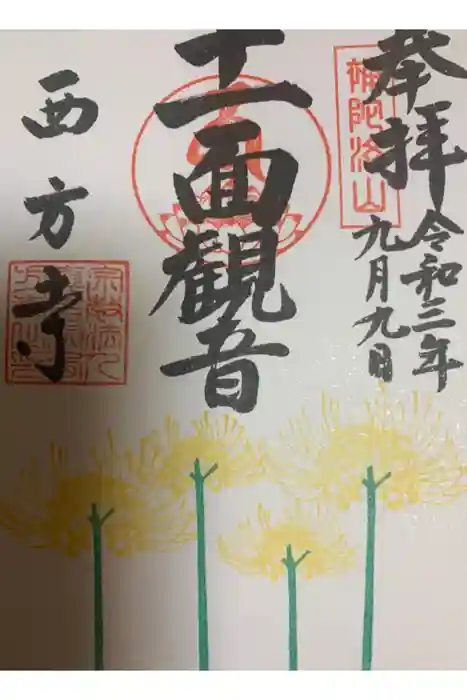 奉拝
補陀洛山
令和三年
九月九日
十一面觀音
西方寺